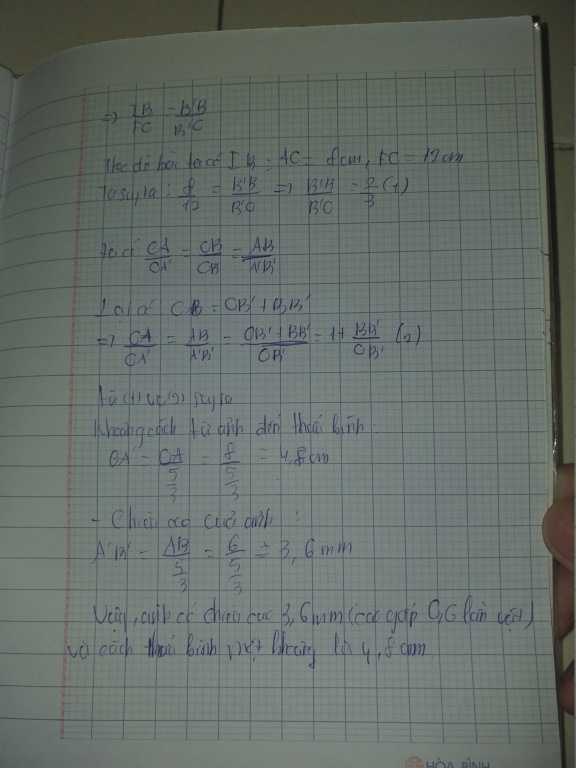 => IB/FO = B'B/B'O
Theo đề bài ta có IB = AO = 8cm, FO = 12cm
Ta suy ra: 8/12 = B'B/B'O => B'B/B'O = 2/3 (1)
Ta có OA/OA' = OB/OB' = AB/A'B'
Lại có OB = OB' + BB'
=> OA/OA' = AB/A'B' = OB' + BB'/OB' = 1 + BB'/OB' (2)
Từ (1) và (2) suy ra
Khoảng cách từ ảnh đến thấu kính:
OA' = OA/5/3 = 8/5/3 = 4,8cm
- Chiều cao của ảnh:
A'B' = AB/5/3 = 6/5/3 = 3,6mm
Vậy, ảnh có chiều cao 3,6mm (cao gấp 0,6 lần vật)
và cách thấu kính một khoảng là 4,8cm.
HÒA BÌNH